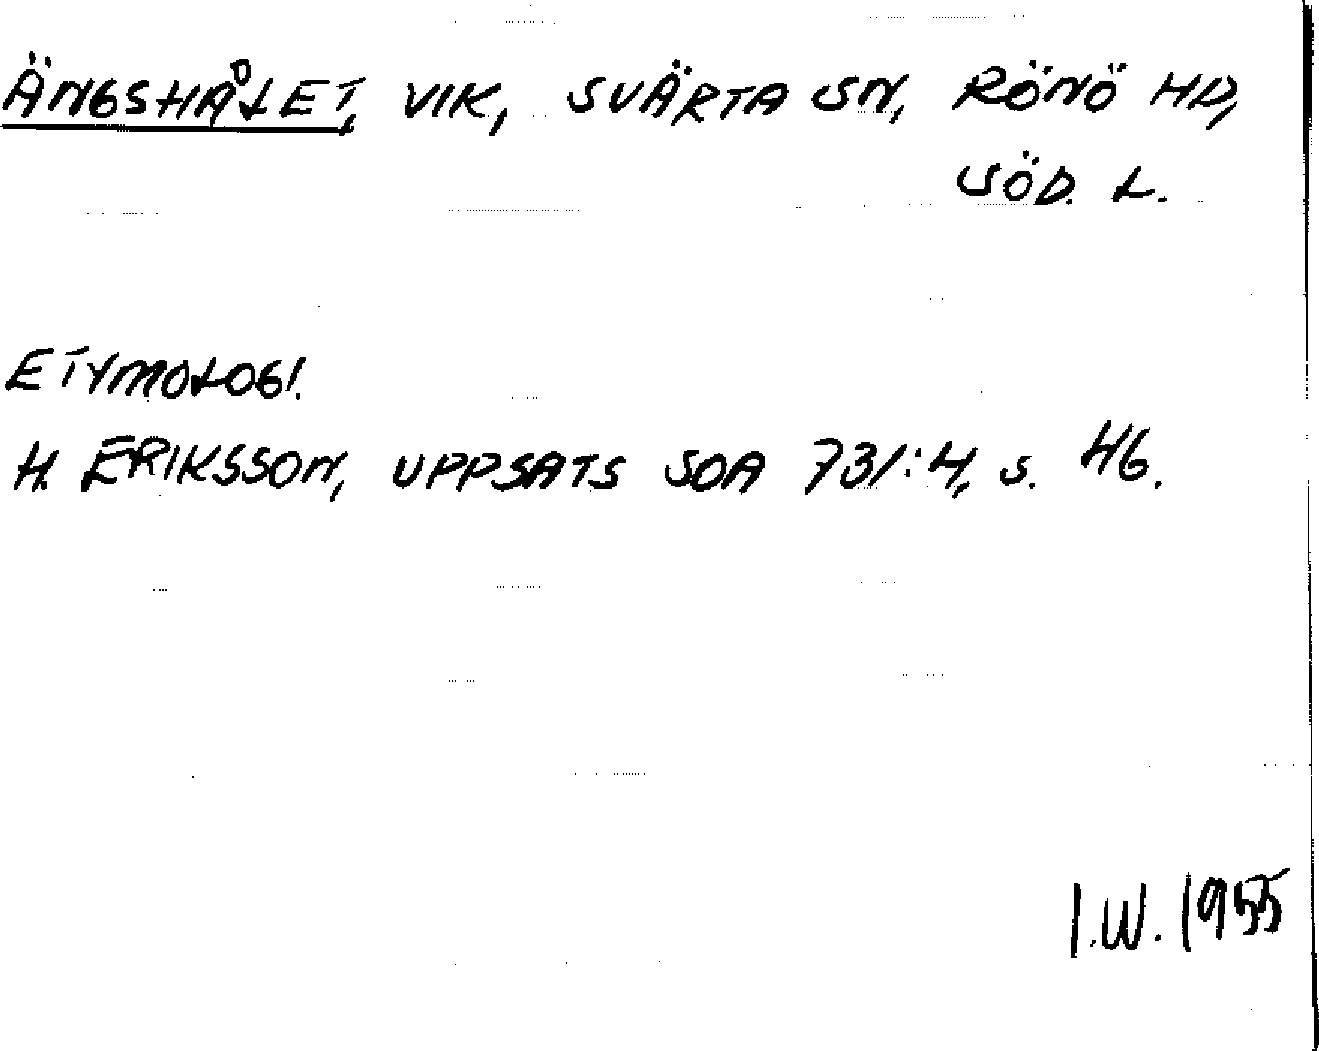 ÄNGSHÅLET, VIK, SVÄRTA SN, RÖNÖ HD,
SÖD. L.
ETYMOLOGI.
H. ERIKSSON, UPPSATS SOA 731:4, S. 46.
I.W. 1955